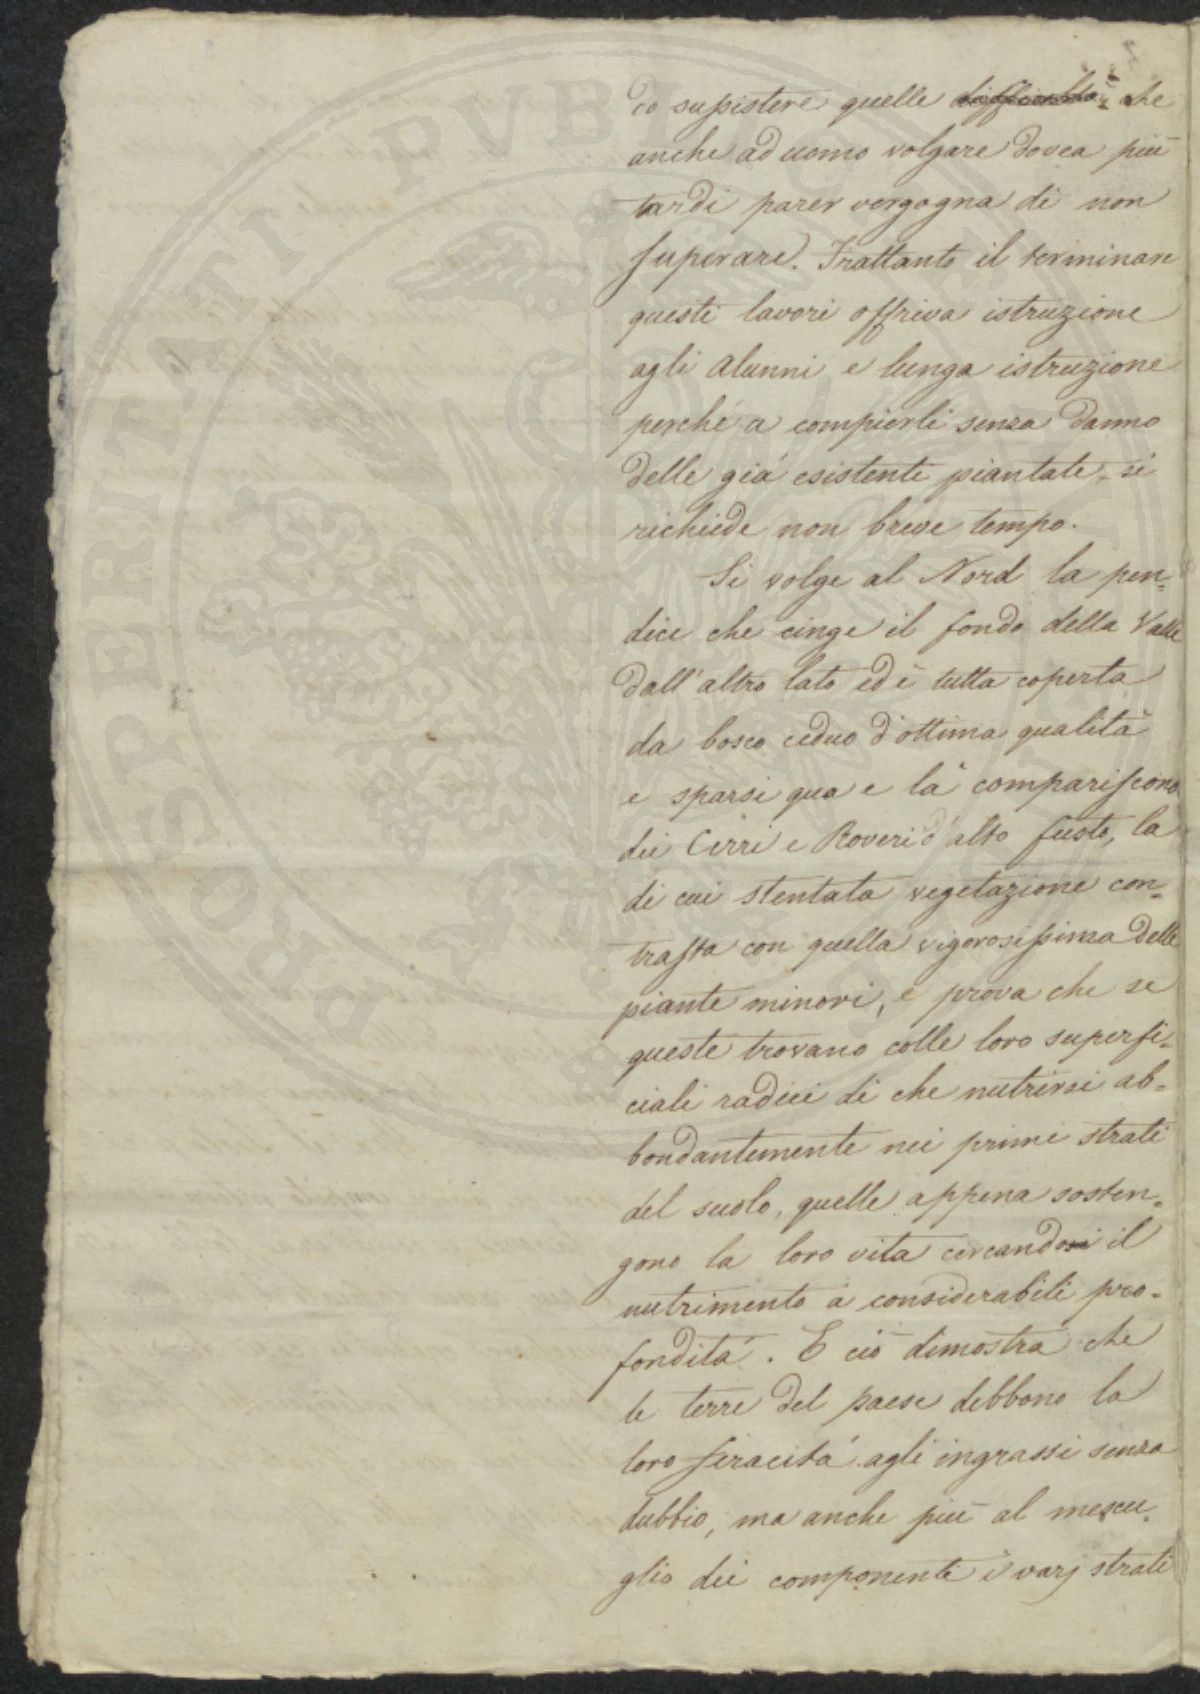 do sussistere quelle difficoltà che
anche ad uomo volgare dovea più
tardi parer vergogna di non
superare. Frattanto il terminare
questi lavori offriva istruzione
agli Alunni e lunga istruzione
perché a compierli senza danno
delle già esistente piantate, si
richiede non breve tempo.
Si volge al Nord la pen-
dice che cinge il fondo della Valle
dall'altro lato ed è tutta coperta
da bosco ceduo d'ottima qualità
e sparsi qua e là compariscono
dei Cerri e Roveri d'alto fusto, la
di cui stentata vegetazione con-
trasta con quella vigorosissima delle
piante minori, e prova che se
queste trovano colle loro superfi-
ciali radici di che nutrirsi ab-
bondantemente nei primi strati
del suolo, quelle appena sosten-
gono la loro vita cercandosi il
nutrimento a considerabili pro-
fondità. E ciò dimostra che
le terre del paese debbono la
loro feracità agli ingrassi senza
dubbio, ma anche più al mescu-
glio dei componenti i varj strati
PROSPERITATI PVBLICAE